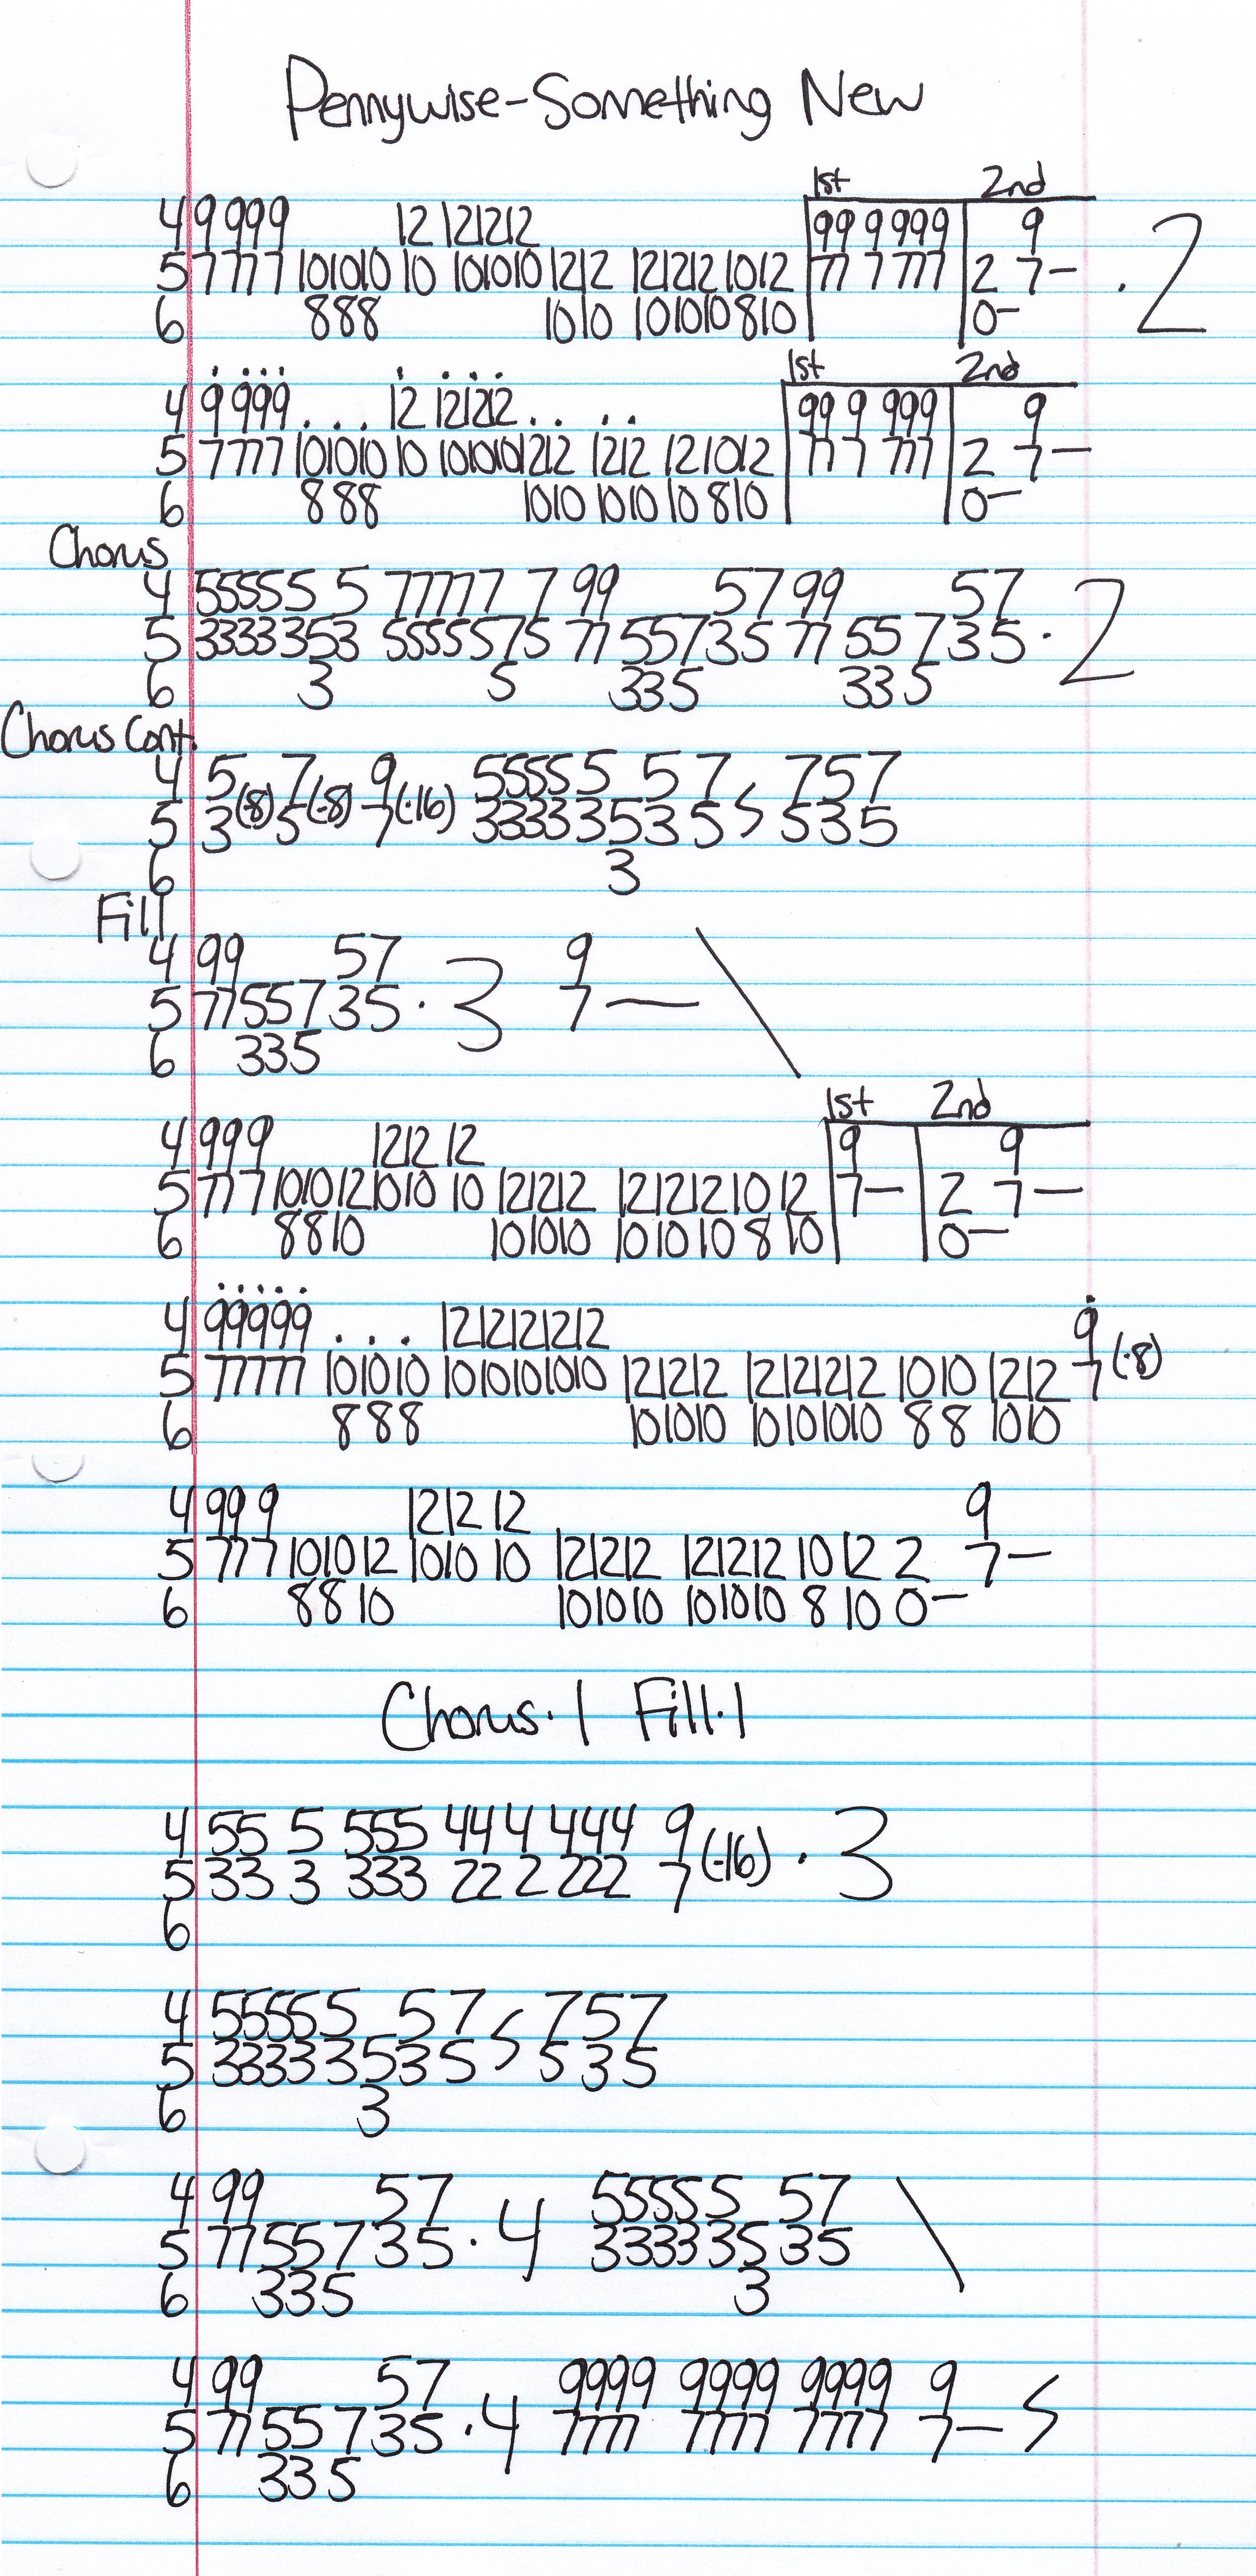 Pennywise-Something New
1st 2nd
4 9 999 12 121212 99 9 999 9
5 7 777 101010 10 101010 1212 121212 1012 77 7 777 2 7— . 2
6 888 1010 101010 810 0—
1st 2nd
4 9 999 . . . 12 121212 . . . . 99 9 999 9
5 7 777 101010 10 1010101212 1212 121012 77 7 777 2 7—
6 888 1010 1010 10 810 0—
Chorus
4 55555 5 77777 7 99 57 99 57
5 3333353 5555575 77 55735 77 55 735 . 2
6 3 5 335 33 5
Chorus Cont.
4 5 (·8) 7 (·8) 9 (·16) 55555 57 S 757
5 3 5 7 33333535 535
6 3
Fill
4 99 57 9
5 7755735 . 3 7— \
6 335
1st 2nd
4 999 1212 12 9 9
5 777 101012 1010 10 121212 1212121012 7— 2 7—
6 8810 101010 101010810 0—
4 99999 . . . 1212121212 9
5 77777 101010 1010101010 121212 12121212 1010 1212 7 (·8)
6 888 101010 10101010 88 1010
4 99 9 1212 12 9
5 777 101012 1010 10 121212 121212 1012 2 7—
6 8810 101010 101010 810 0—
Chorus·1 Fill·1
4 55 5 555 44 4 444 9
5 33 3 333 22 2 222 7 (·16) . 3
6
4 55555 57 S 757
5 33333535 535
6 3
4 99 57 55555 57
5 7755735 . 4 333335 35 \
6 335 3
4 99 57 9999 9999 9999 9
5 7755735 . 4 7777 7777 7777 7— S
6 335